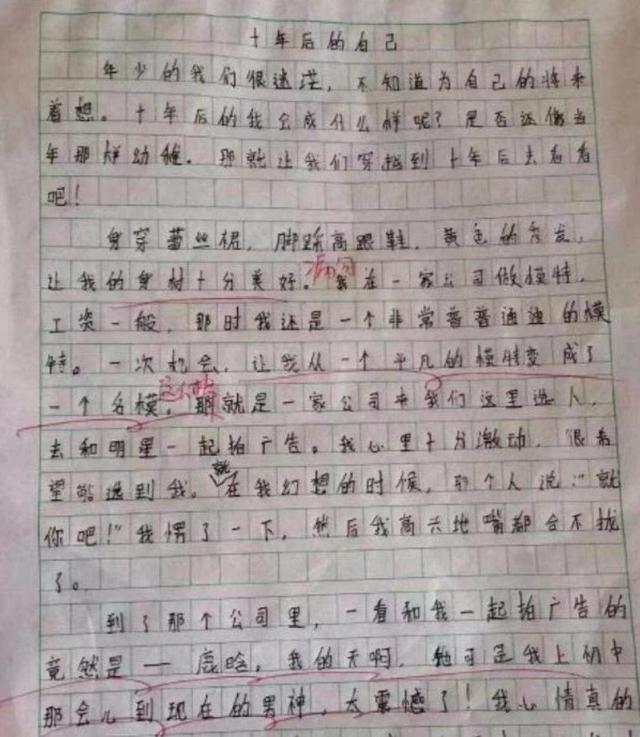 十年后的自己
年少的我们很迷茫，不知道为自己的将来
着想。十年后的我会成什么样呢？是否还像当
年那样幼稚。那就让我们穿越到十年后去看看
吧！
身穿蕾丝裙，脚踩高跟鞋，黄色的秀发，
让我的身材十分美好。病句 我在一家公司做模特，
工资一般，那时我还是一个非常普普通通的模
特。一次机会，让我从一个平凡的模特变成了
一个名模。这个机会 那就是一家公司来我们这里选人，
去和明星一起拍广告。我心里十分激动，很希
望能选到我。就在我幻想的时候，那个人说："就
你吧！"我愣了一下，然后我高兴地嘴都合不拢
了。
到了那个公司里，一看和我一起拍广告的
竟然是——鹿晗。我的天啊，他可是我上初中
那会儿到现在的男神，太震憾了！我心情真的